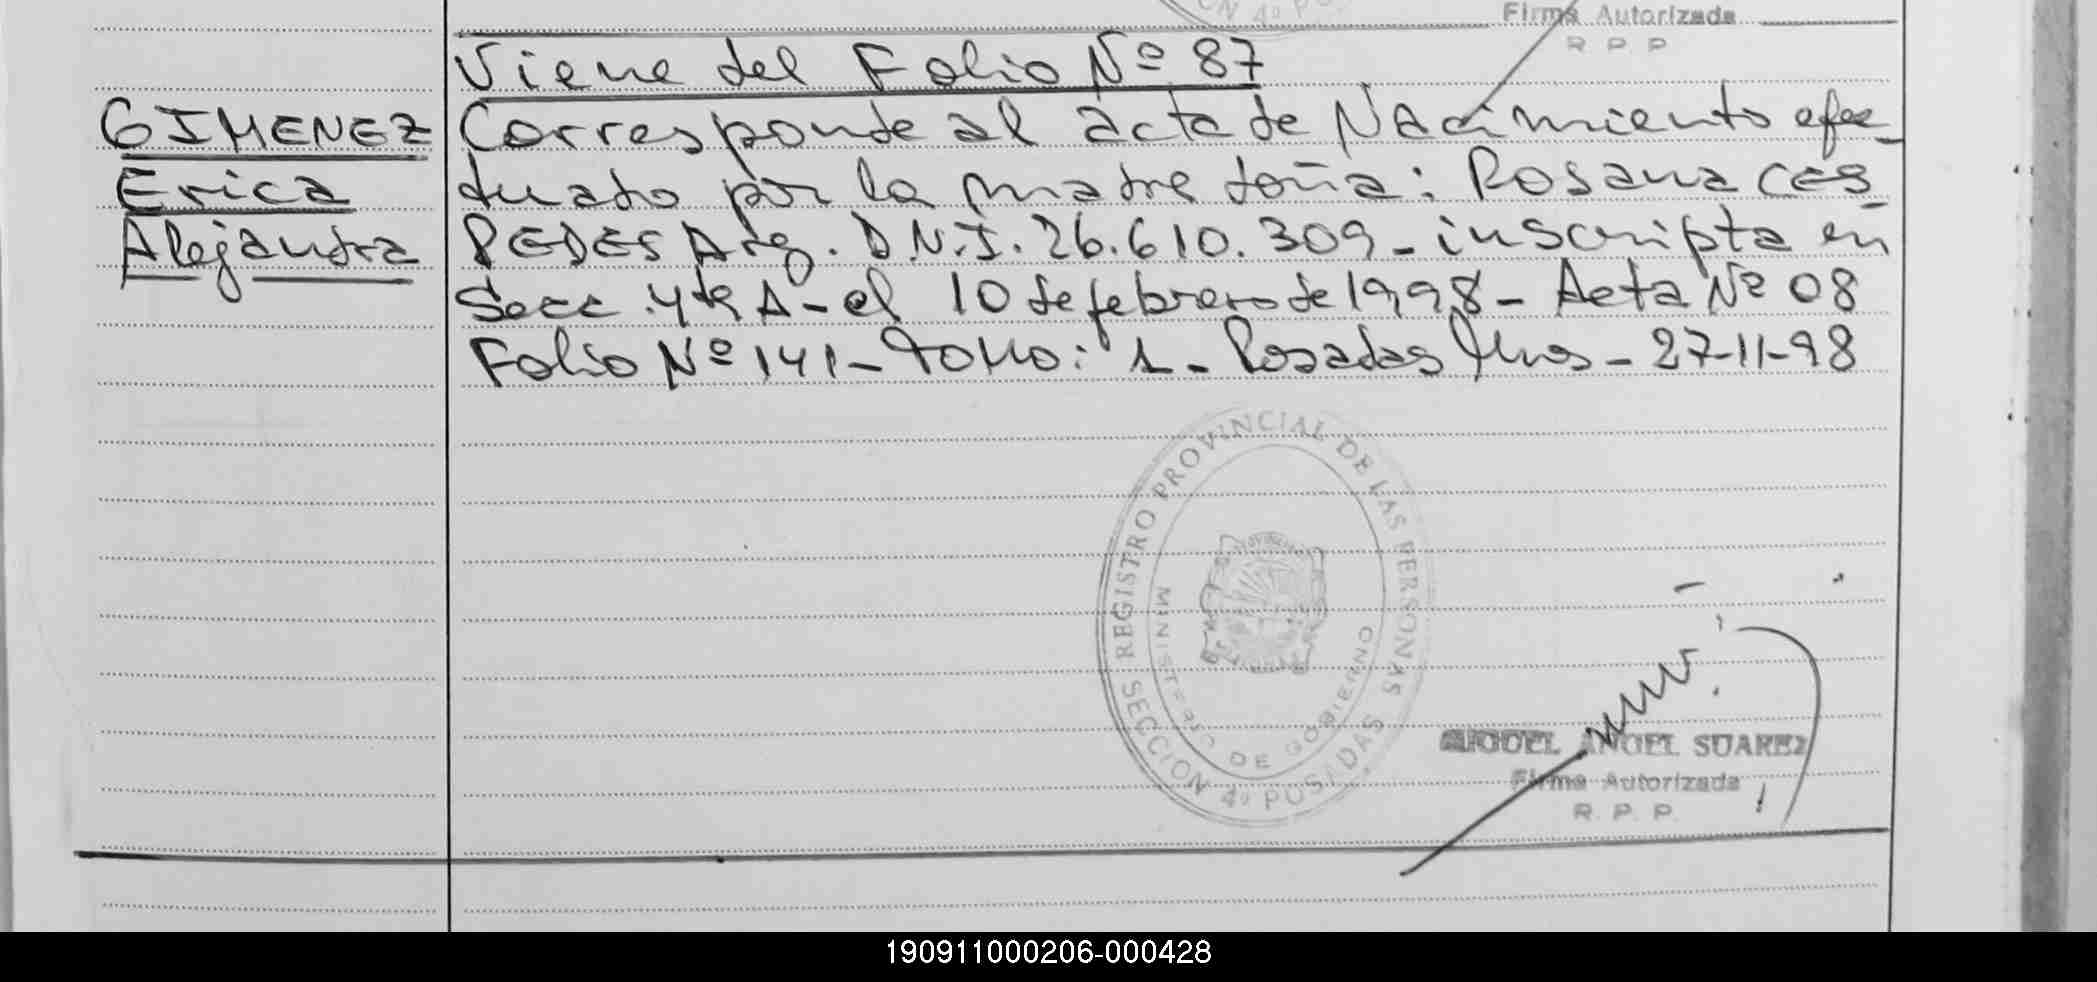 Firma Autorizada
R P P
Viene del Folio Nº 87
GIMENEZ
Erica
Alejandra
Corresponde al acta de Nacimiento efec
tuado por la madre doña: Rosana CES
PEDES Arg. D.N.I. 26.610.309 - inscripta en
Secc. 4ta A - el 10 de febrero de 1998 - Acta Nº 08
Folio Nº 141 - Tomo: 1 - Posadas Mnes - 27-11-98
REGISTRO PROVINCIAL DE LAS PERSONAS
SECCION 4ª POSADAS
MINISTERIO DE GOBIERNO
MIGUEL ANGEL SUAREZ
Firma Autorizada
R. P. P.
190911000206-000428